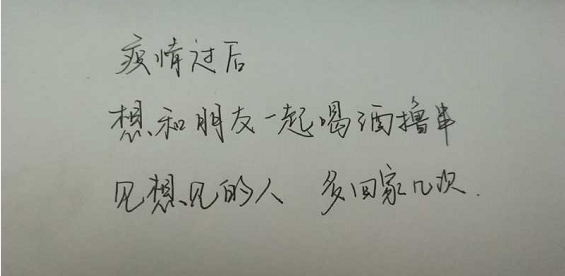 疫情过后
想和朋友一起喝酒撸串
见想见的人 多回家几次.